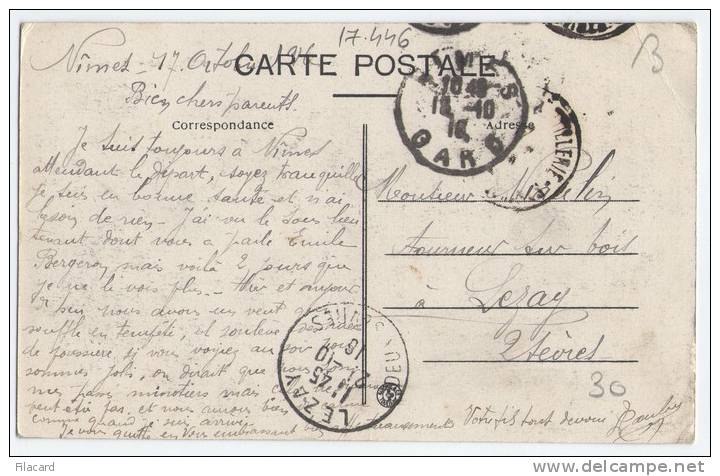 17.446
Nîmes - 17 Octobre 1916
CARTE POSTALE
B
Bien chers parents.
Correspondance
Adresse
NIMES
10 45
18 -10
16
GARD
Je suis toujours à Nîmes
attendant le départ, soyez tranquilles
je suis en bonne santé et n'ai
besoin de rien - J'ai vu le sous lieu
tenant dont vous a parlé Emile
Bergeron mais voilà 2 jours que
je ne le vois plus - Hier et aujour
d'hui nous avons un vent qui
souffle en tempête, et soulève
de poussière, si vous voyiez au soir
sommes jolis, on dirait que nous
mes pas minotiers mais
veut être pas, et nous aurons bien
comme quand je suis arrivé
Je vous quitte en vous embrassant bien affectueusement Votre fils tout dévoué
Monsieur
tourneur sur bois
à Lezay
2 Sèvres
LEZAY
11 45
21 -10
16
DEUX SEVRES
30
Filacard
www.delcampe.net